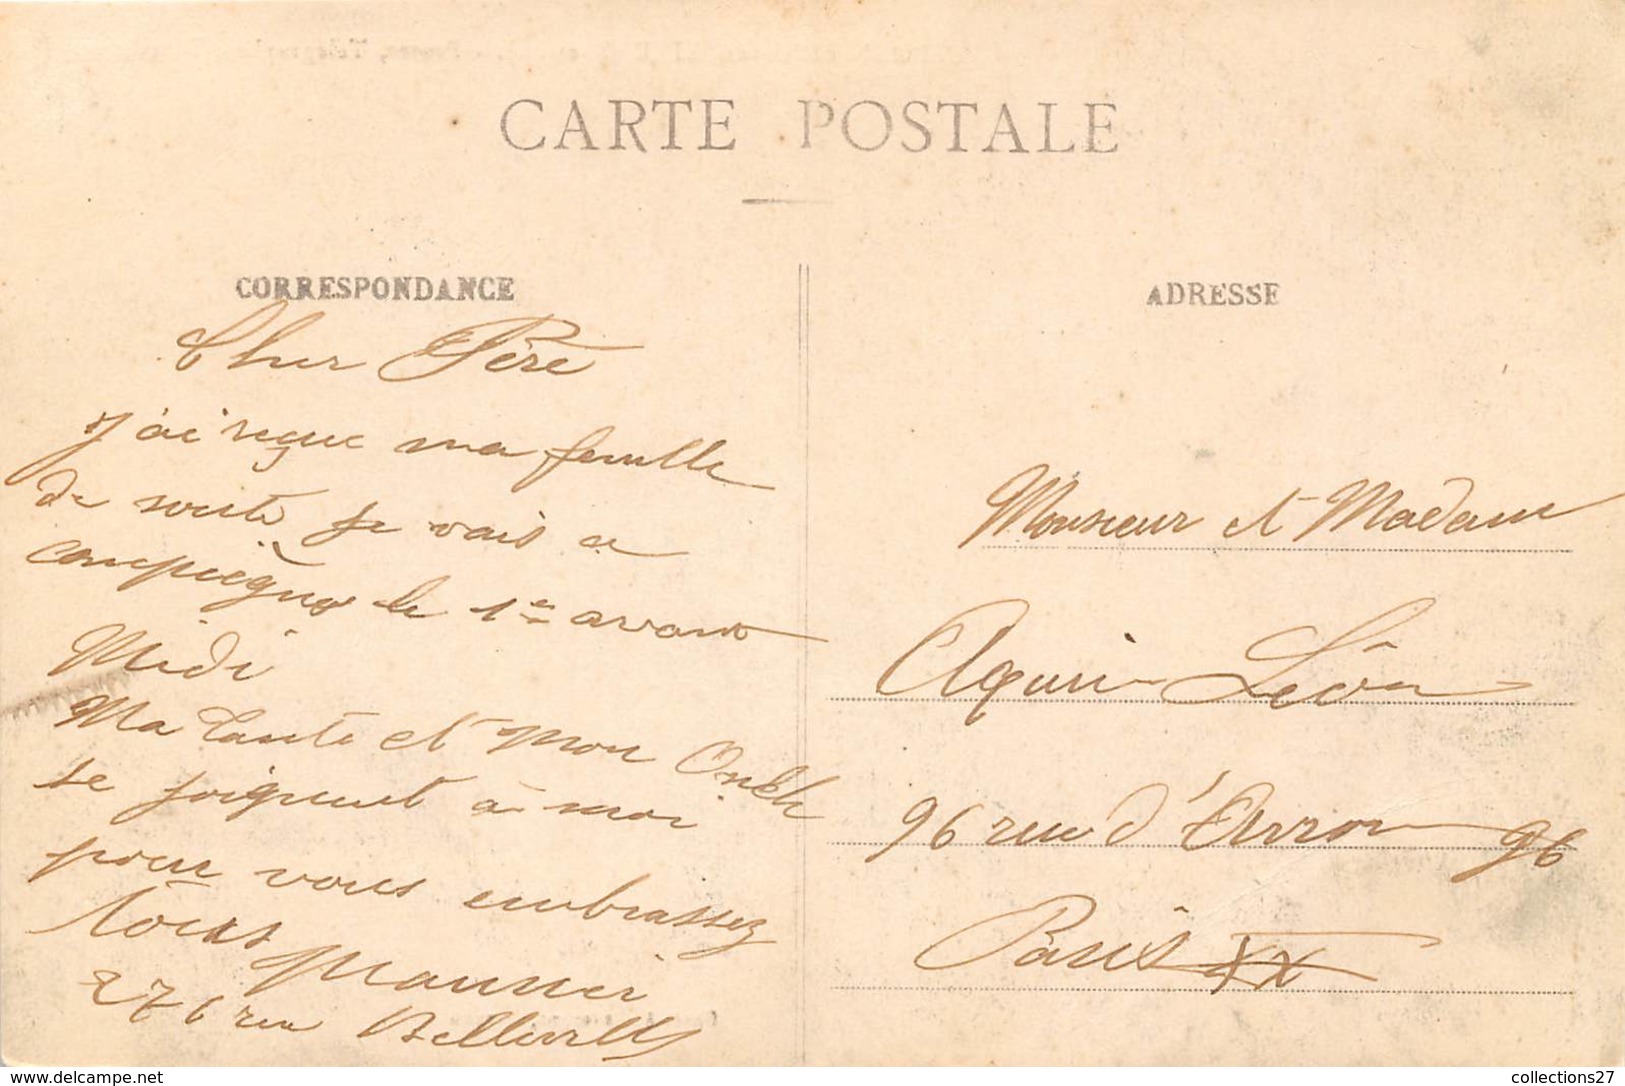 CARTE POSTALE
CORRESPONDANCE
Cher Père
J'ai reçue ma feuille
de route je vais a
compiègne le 1er avant
Midi
Ma tante et Mon Oncle
se joignent à moi
pour vous embrassez
tous
276 rue Belleville
ADRESSE
Monsieur et Madame
Aquin Léon
96 rue d'Avron 96
Paris XX
www.delcampe.net
collections27